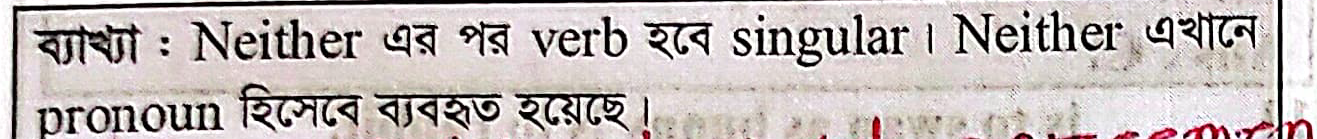 ব্যাখ্যা : Neither এর পর verb হবে singular। Neither এখানে
pronoun হিসেবে ব্যবহৃত হয়েছে।